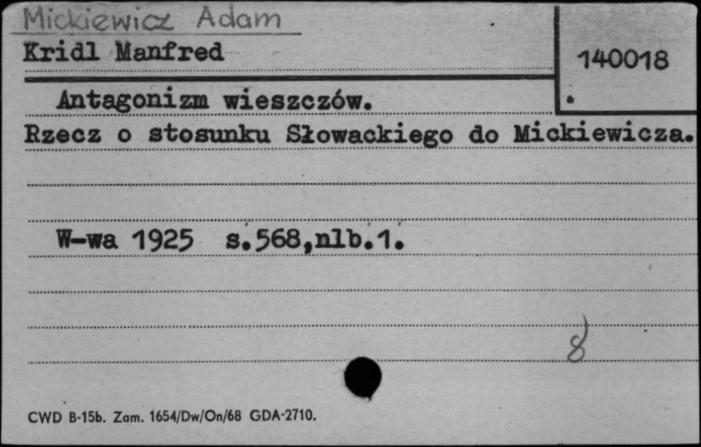 Mickiewicz Adam
Kridl Manfred
140018
Antagonizm wieszczów.
Rzecz o stosunku Słowackiego do Mickiewicza.
W-wa 1925 s.568,nlb.1.
8
CWD B-15b. Zam. 1654/Dw/On/68 GDA-2710.